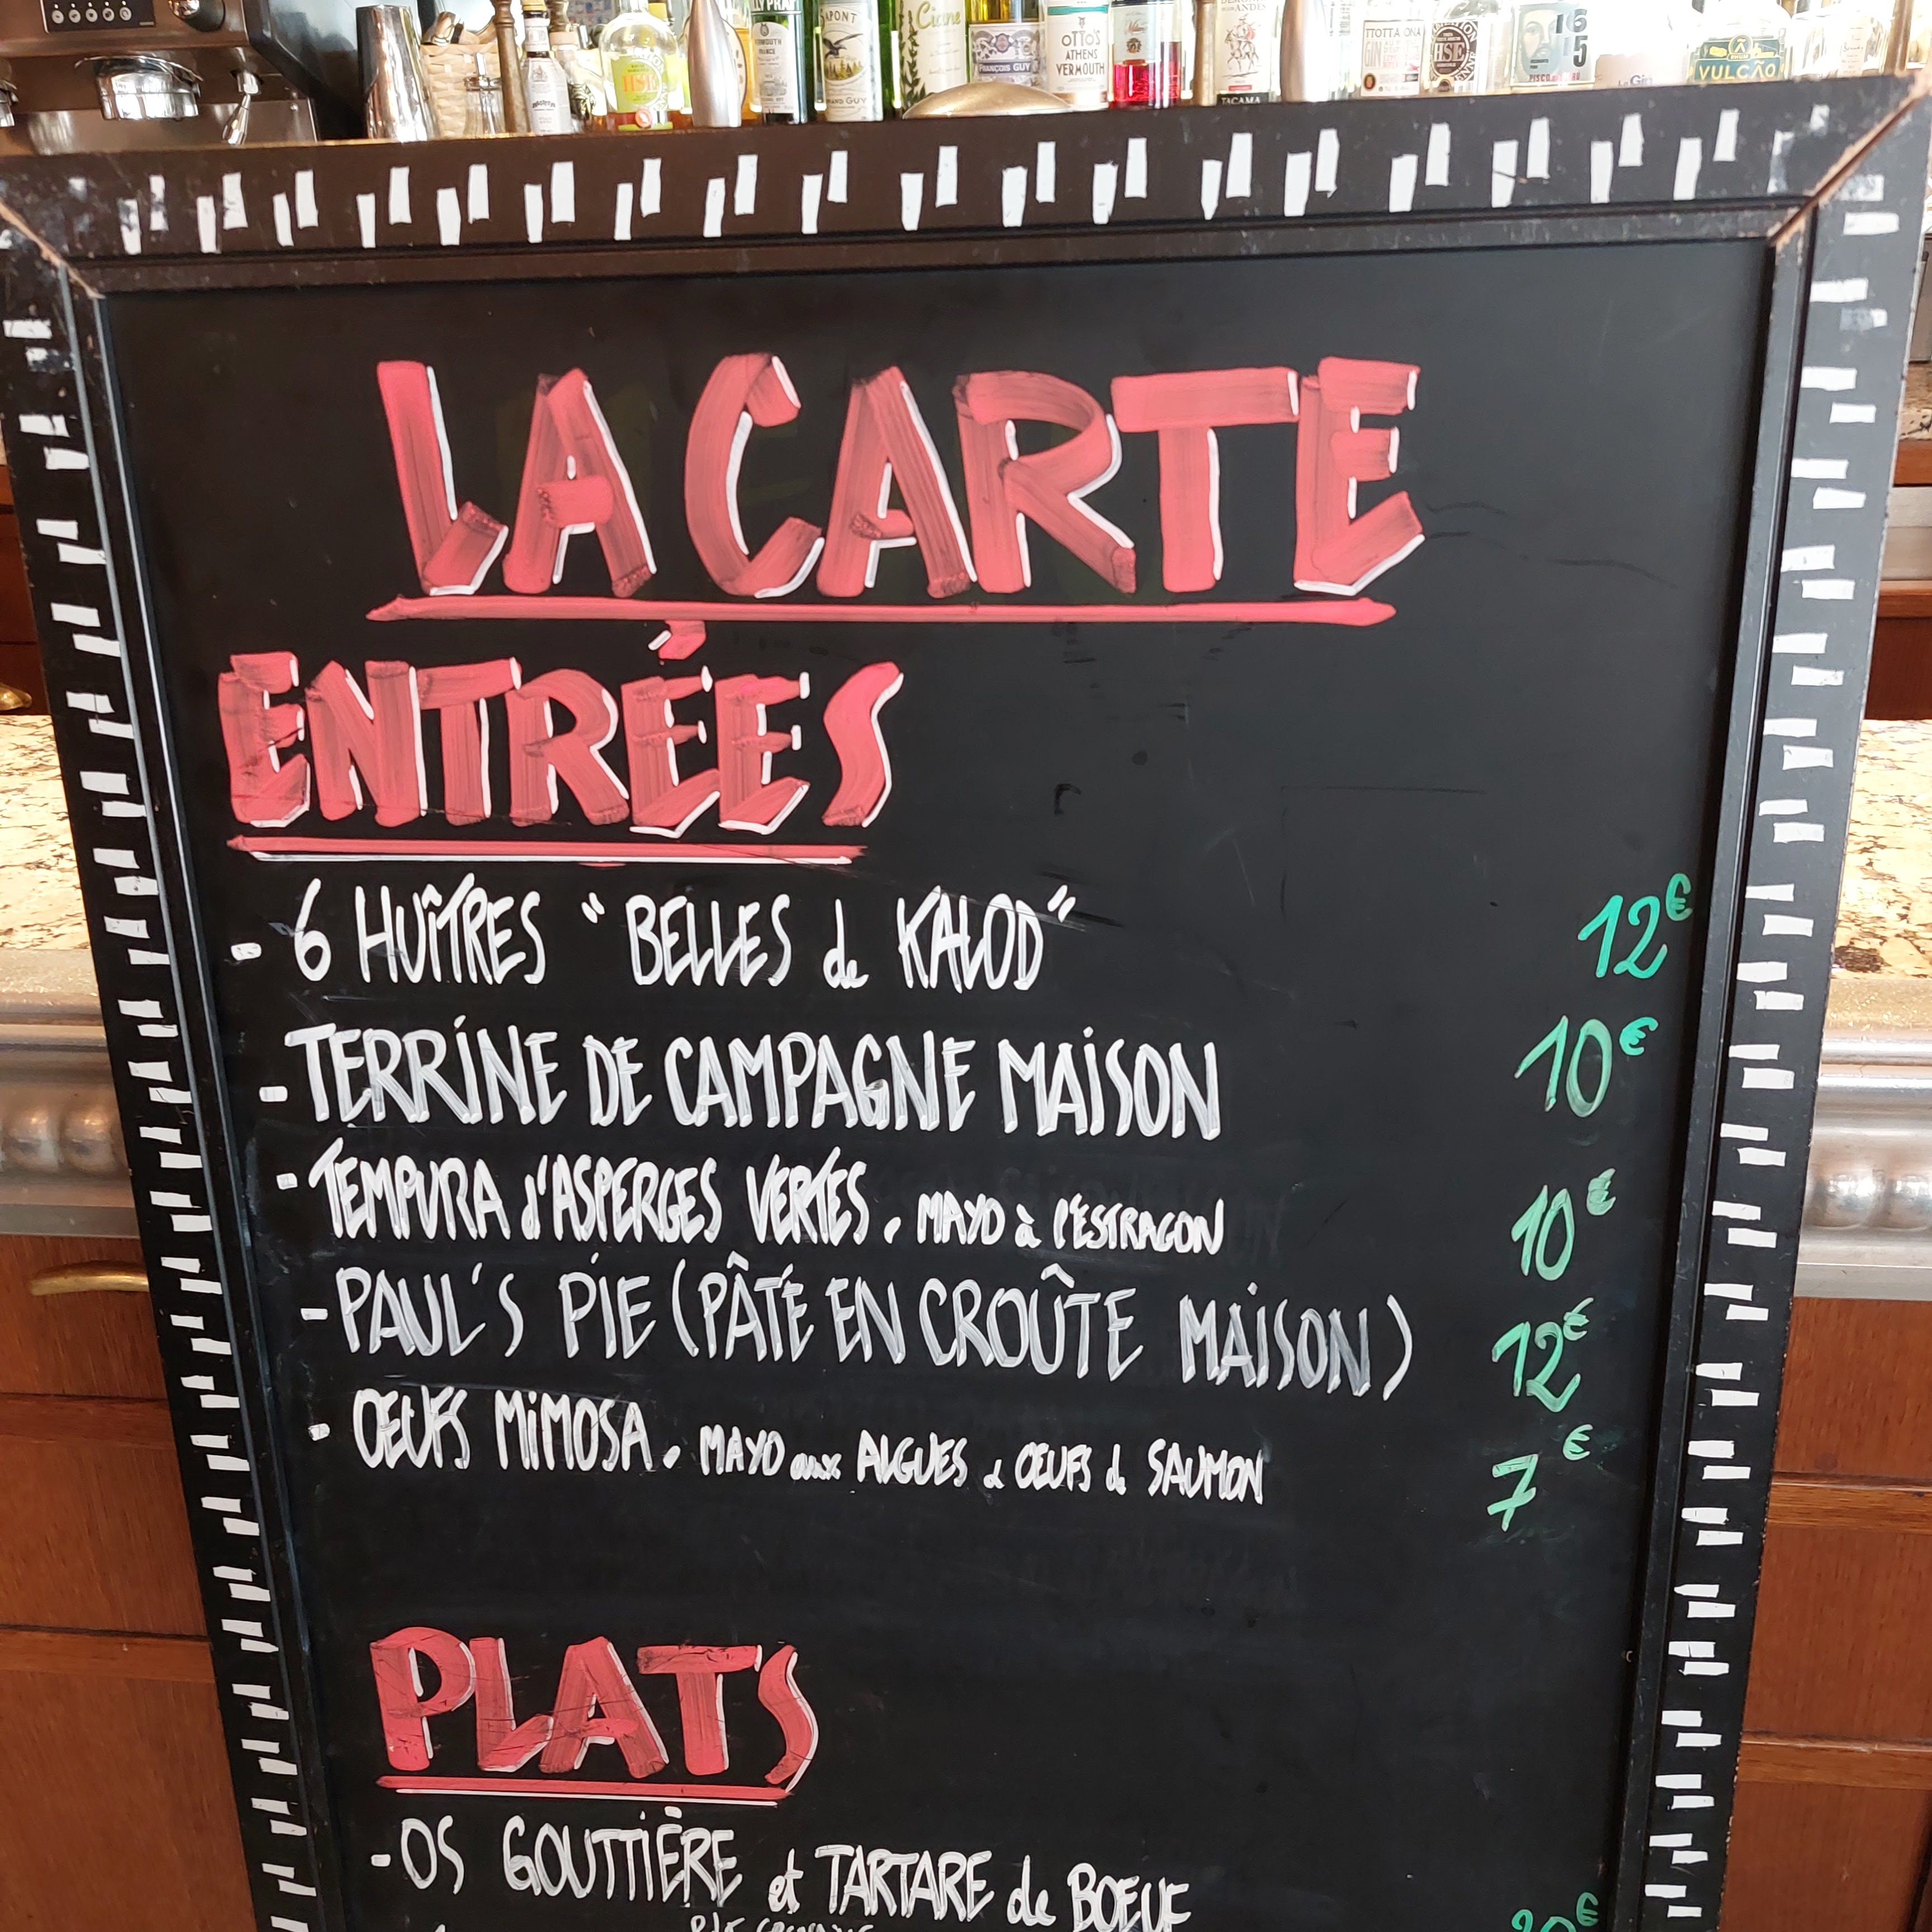 SAPONT
Ciane
FRANÇOIS GUY
OTTO'S
ATHENS
VERMOUTH
TACAMA
HSE
VULCÃO
LA CARTE
ENTRÉES
- 6 HUÎTRES "BELLES de KALOD" 12€
- TERRINE DE CAMPAGNE MAISON 10€
- TEMPURA d'ASPERGES VERTES. MAYO à l'ESTRAGON 10€
- PAUL'S PIE (PÂTÉ EN CROÛTE MAISON) 12€
- OEUFS MIMOSA. MAYO aux ALGUES & OEUFS de SAUMON 7€
PLATS
- OS GOUTTIÈRE et TARTARE de BOEUF